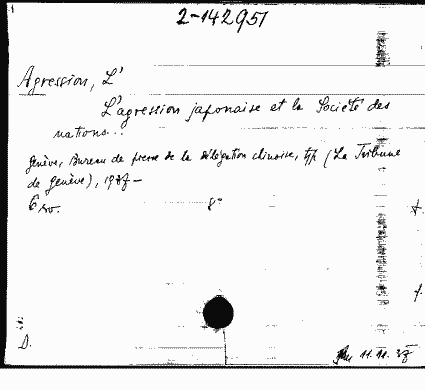 2-142951
Agression, L'
L'agression japonaise et la Société des
nations...
Genève, Bureau de presse de la délégation chinoise, typ. (La Tribune
de Genève), 1937-
6 vo. 8°
D.
11.11.38